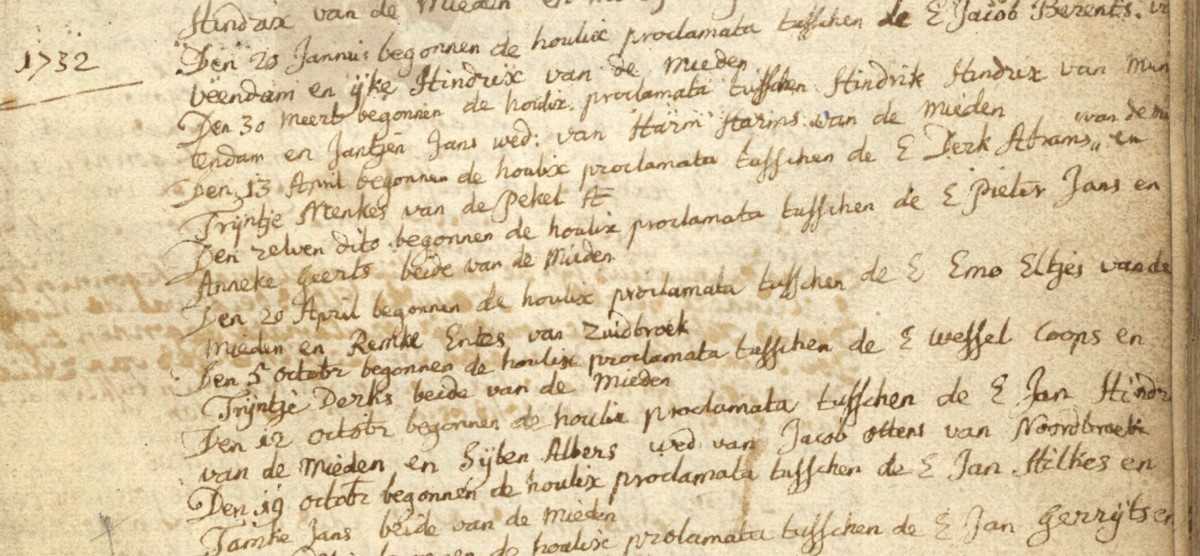 Hindrix van de Mieden en
1732
Den 20 Jannus begonnen de houlix proclamata tusschen de E Jacob Berents. v
veendam en ÿke Hindrix van de Mieden
Den 30 Meert begonnen de houlix proclamata tusschen Hindrik Hindrix van Mun
tendam en Jantjen Jans wed: van Harm Harms van de Mieden
van de mi
Den 13 April begonnen de houlix proclamata tusschen de E Derk Abrams en
Trÿntje Menkes van de Pekel A
Den zelven dito begonnen de houlix proclamata tusschen de E Pieter Jans en
Anneke Geerts beide van de Mieden
Den 20 April begonnen de houlix proclamata tusschen de E Emo Eltjes van de
Mieden en Remke Entes van Zuidbroek
Den 5 octobr begonnen de houlix proclamata tusschen de E Wessel Coops en
Trÿntje Derks beide van de Mieden
Den 12 octobr begonnen de houlix proclamata tusschen de E Jan Hindr
van de Mieden en Sÿben Albers wed van Jacob Ottens van Noordbroek
Den 19 octobr begonnen de houlix proclamata tusschen de E Jan Hilkes en
Tamke Jans beide van de Mieden
begonnen de houlix proclamata tusschen de E Jan Gerrÿtsen